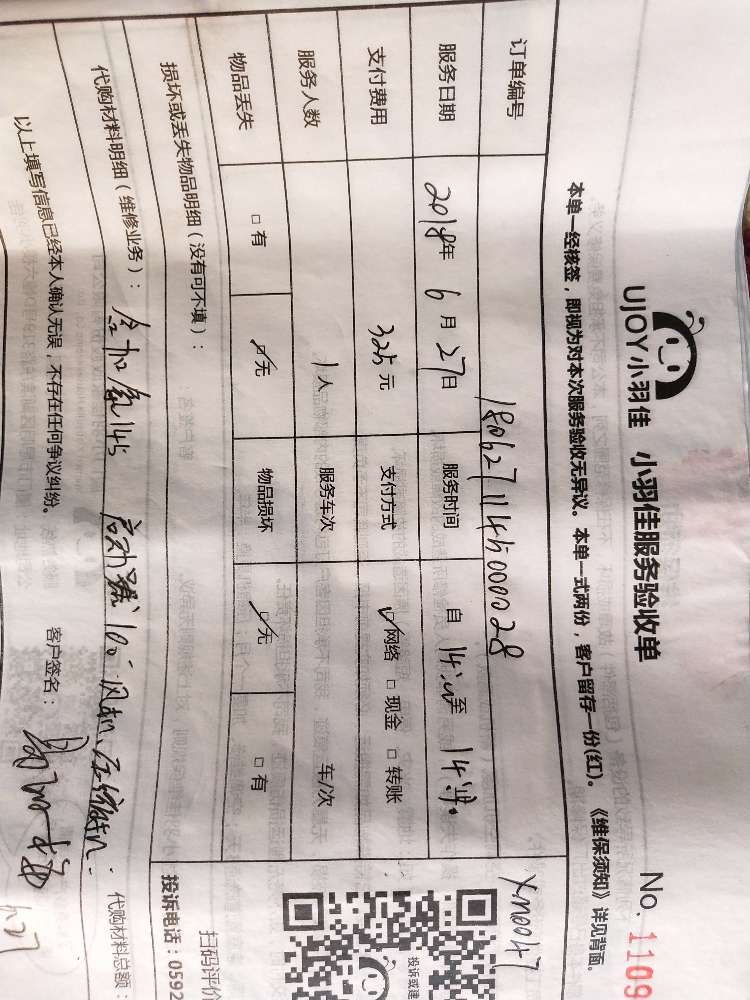 UJOY小羽佳 小羽佳服务验收单 No. 1109
本单一经核签，即视为对本次服务验收无异议。本单一式两份，客户留存一份(红)。《维保须知》详见背面。
订单编号 18062711450000028 Xm0047
服务日期 2018年 6月 27日 服务时间 自 14: 至 14:
支付费用 325元 支付方式 ☑网络 □现金 □转账
服务人数 1人 服务车次 车/次
物品丢失 □有 ☑无 物品损坏 ☑无 □有
损坏或丢失物品明细（没有可不填）：
代购材料明细（维修业务）： 145 启动器100 风机 压缩机 代购材料总额：
以上填写信息已经本人确认无误，不存在任何争议纠纷。 客户签名：
投诉或建
扫码评价
投诉电话：0592